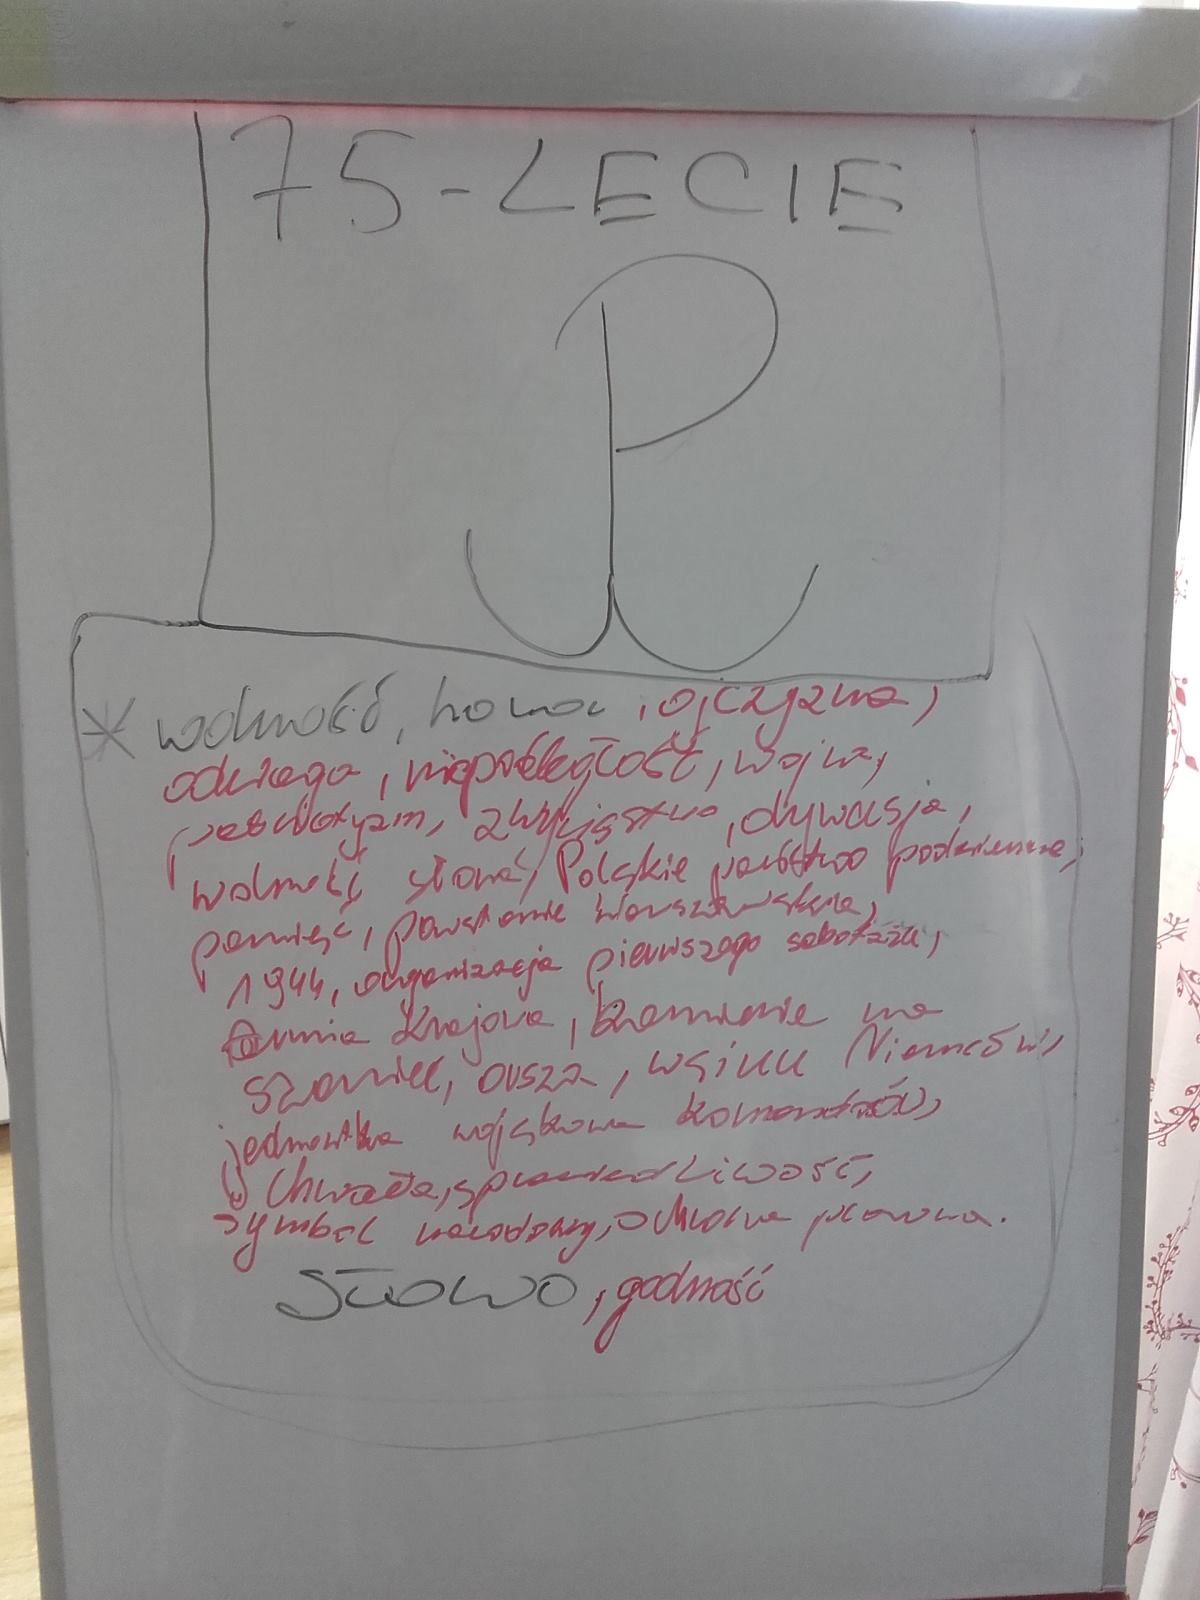 75-LECIE
* wolność, honor, ojczyzna,
odwaga, niepodległość, wojna,
patriotyzm, zwycięstwo, dywersja,
wolność słowa, Polskie państwo podziemne,
pamięć, powstanie warszawskie,
1944, organizacja pierwszego sabotażu,
Armia Krajowa, kamienie na
szaniec,
jednostka wojskowa komandosów,
Chwała, sprawiedliwość,
symbol narodowy, ochrona prawna.
SŁOWO, godność